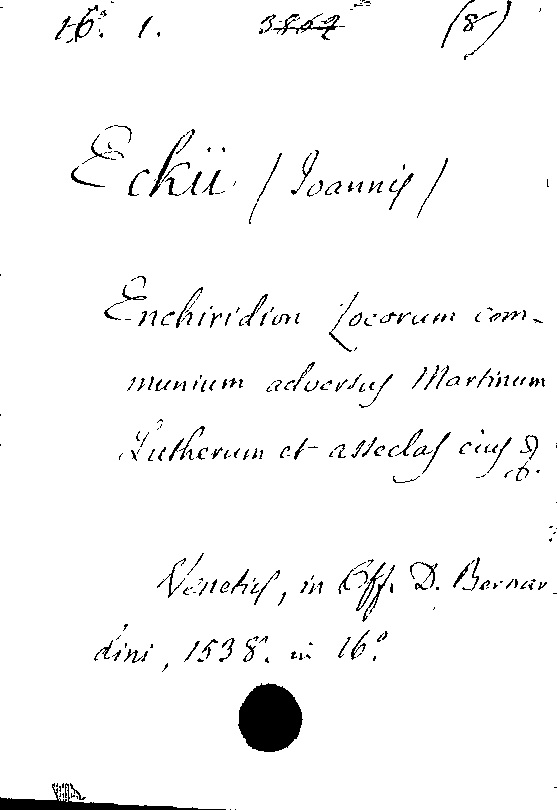 16°. 1. 3864 (8)
Eckii (Joannis)
Enchiridion Locorum com-
munium adversus Martinum
Lutherum et asseclas eius &.
Venetiis, in Off. D. Bernar-
dini, 1538. in 16°.